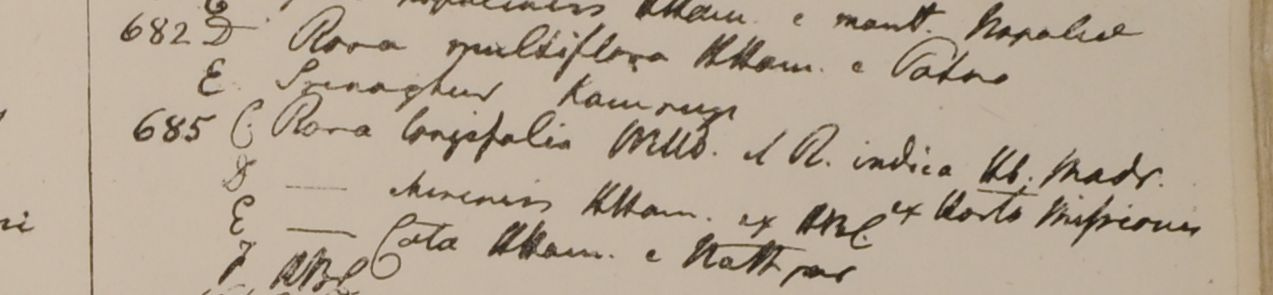 HHam. e mont. Napaliae
682 D Rosa multiflora HHam. e Patna
E. Srinaghur Kamrup
685 C Rosa longifolia Willd. & R. indica Hb. Madr.
D — chinensis HHam. ex HBC ex Horto Missionis
E — Cota HHam. e Nathpur
F HBC